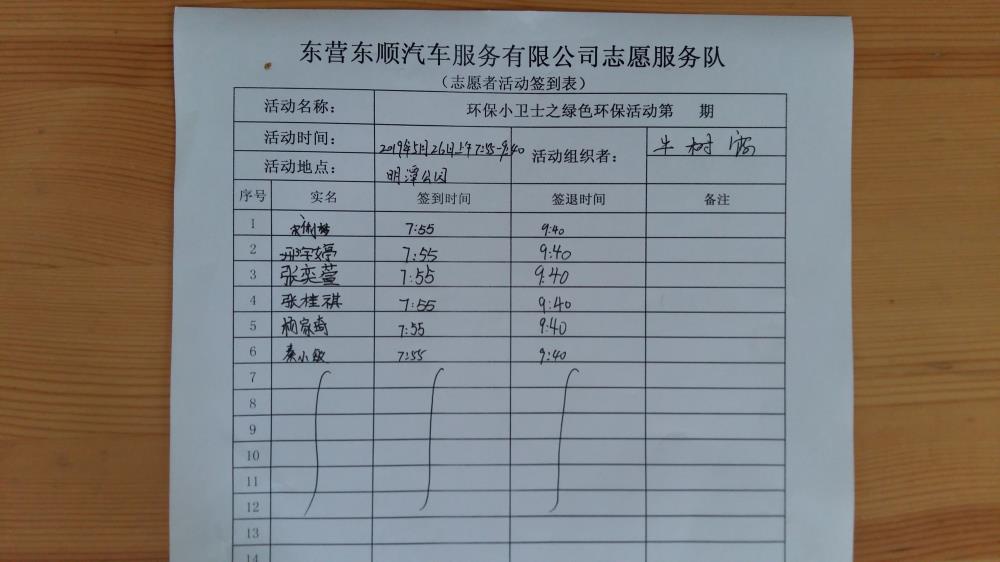 东营东顺汽车服务有限公司志愿服务队
（志愿者活动签到表）
活动名称： 环保小卫士之绿色环保活动第 期
活动时间： 2019年5月26日上午7:55-9:40 活动组织者： 牛树
活动地点： 明潭公园
序号 实名 签到时间 签退时间 备注
1 7:55 9:40
2 邢宇婷 7:55 9:40
3 张奕萱 7:55 9:40
4 张桂祺 7:55 9:40
5 杨家琦 7:55 9:40
6 秦小敏 7:55 9:40
7
8
9
10
11
12
13
14